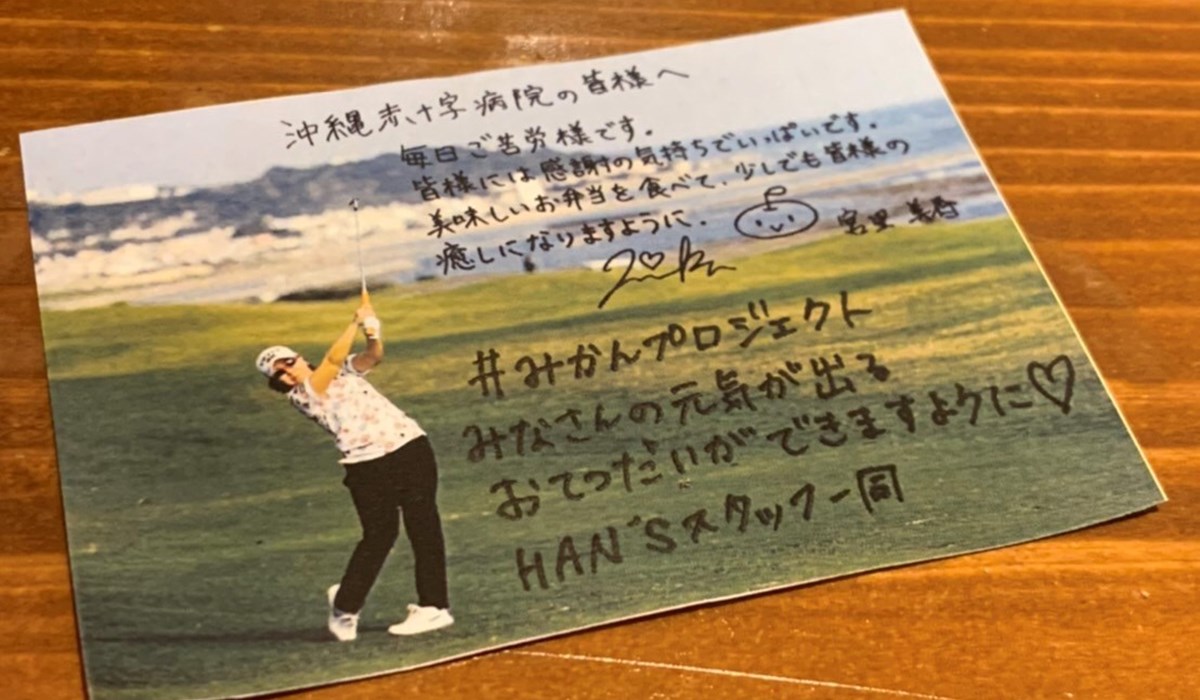 沖縄赤十字病院の皆様へ
毎日ご苦労様です。
皆様には感謝の気持ちでいっぱいです。
美味しいお弁当を食べて、少しでも皆様の
癒しになりますように。
宮里 美香
#みかんプロジェクト
みなさんの元気が出る
おてつだいができますように♡
HAN'Sスタッフ一同